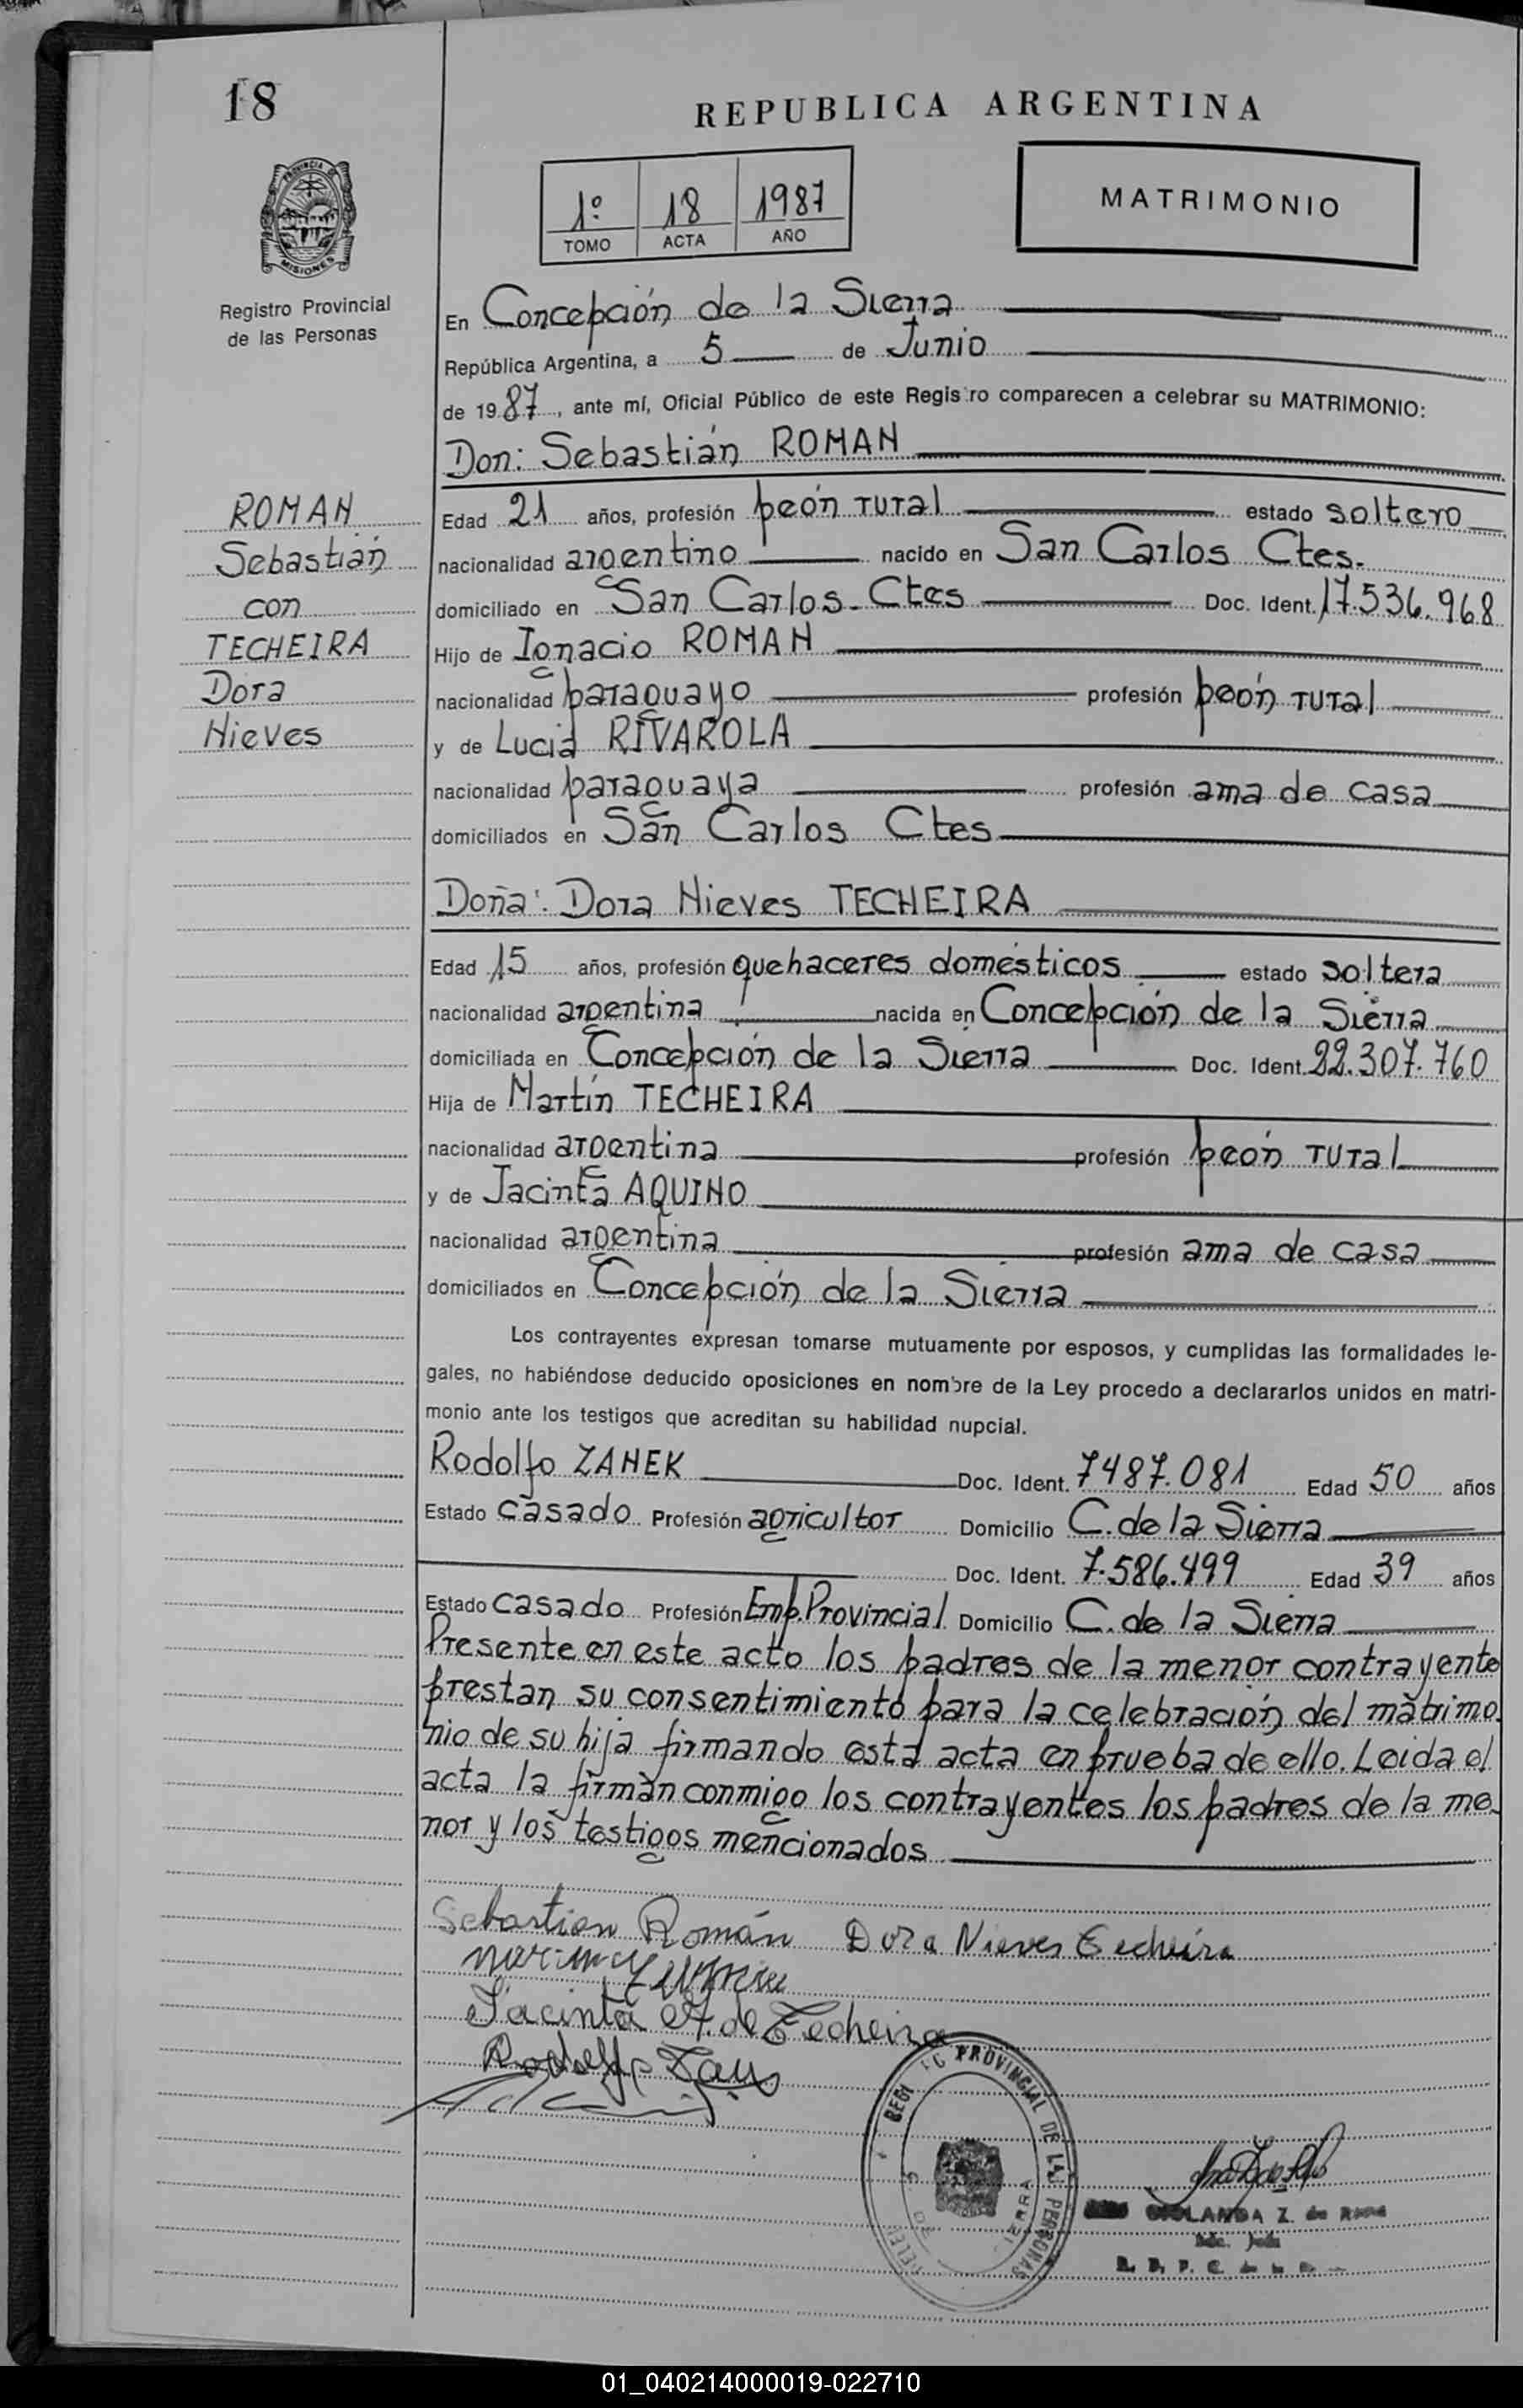 18
REPUBLICA ARGENTINA
PROVINCIA DE
MISIONES
Registro Provincial
de las Personas
1º 18 1987
TOMO ACTA AÑO
MATRIMONIO
En Concepción de la Sierra
República Argentina, a 5 de Junio
de 1987, ante mí, Oficial Público de este Registro comparecen a celebrar su MATRIMONIO:
Don: Sebastián ROMAN
ROMAN
Sebastián
con
TECHEIRA
Dora
Nieves
Edad 21 años, profesión peón rural estado soltero
nacionalidad argentino nacido en San Carlos Ctes.
domiciliado en San Carlos - Ctes Doc. Ident. 17.536.968
Hijo de Ignacio ROMAN
nacionalidad paraguayo profesión peón rural
y de Lucia RIVAROLA
nacionalidad paraguaya profesión ama de casa
domiciliados en San Carlos Ctes
Doña: Dora Nieves TECHEIRA
Edad 15 años, profesión quehaceres domésticos estado soltera
nacionalidad argentina nacida en Concepción de la Sierra
domiciliada en Concepción de la Sierra Doc. Ident. 22.307.760
Hija de Martín TECHEIRA
nacionalidad argentina profesión peón rural
y de Jacinta AQUINO
nacionalidad argentina profesión ama de casa
domiciliados en Concepción de la Sierra
Los contrayentes expresan tomarse mutuamente por esposos, y cumplidas las formalidades le-
gales, no habiéndose deducido oposiciones en nombre de la Ley procedo a declararlos unidos en matri-
monio ante los testigos que acreditan su habilidad nupcial.
Rodolfo ZANEK Doc. Ident. 7487.081 Edad 50 años
Estado casado Profesión agricultor Domicilio C. de la Sierra
Doc. Ident. 7.586.499 Edad 39 años
Estado casado Profesión Emp. Provincial Domicilio C. de la Sierra
Presente en este acto los padres de la menor contrayente
prestan su consentimiento para la celebración del matrimo-
nio de su hija firmando esta acta en prueba de ello. Leida el
acta la firman conmigo los contrayentes los padres de la me-
nor y los testigos mencionados
Sebastian Román Dora Nieves Techeira
Jacinta A. de Techeira
Rodolfo
PROVINCIAL DE LAS PERSONAS
Z. de
01_040214000019-022710